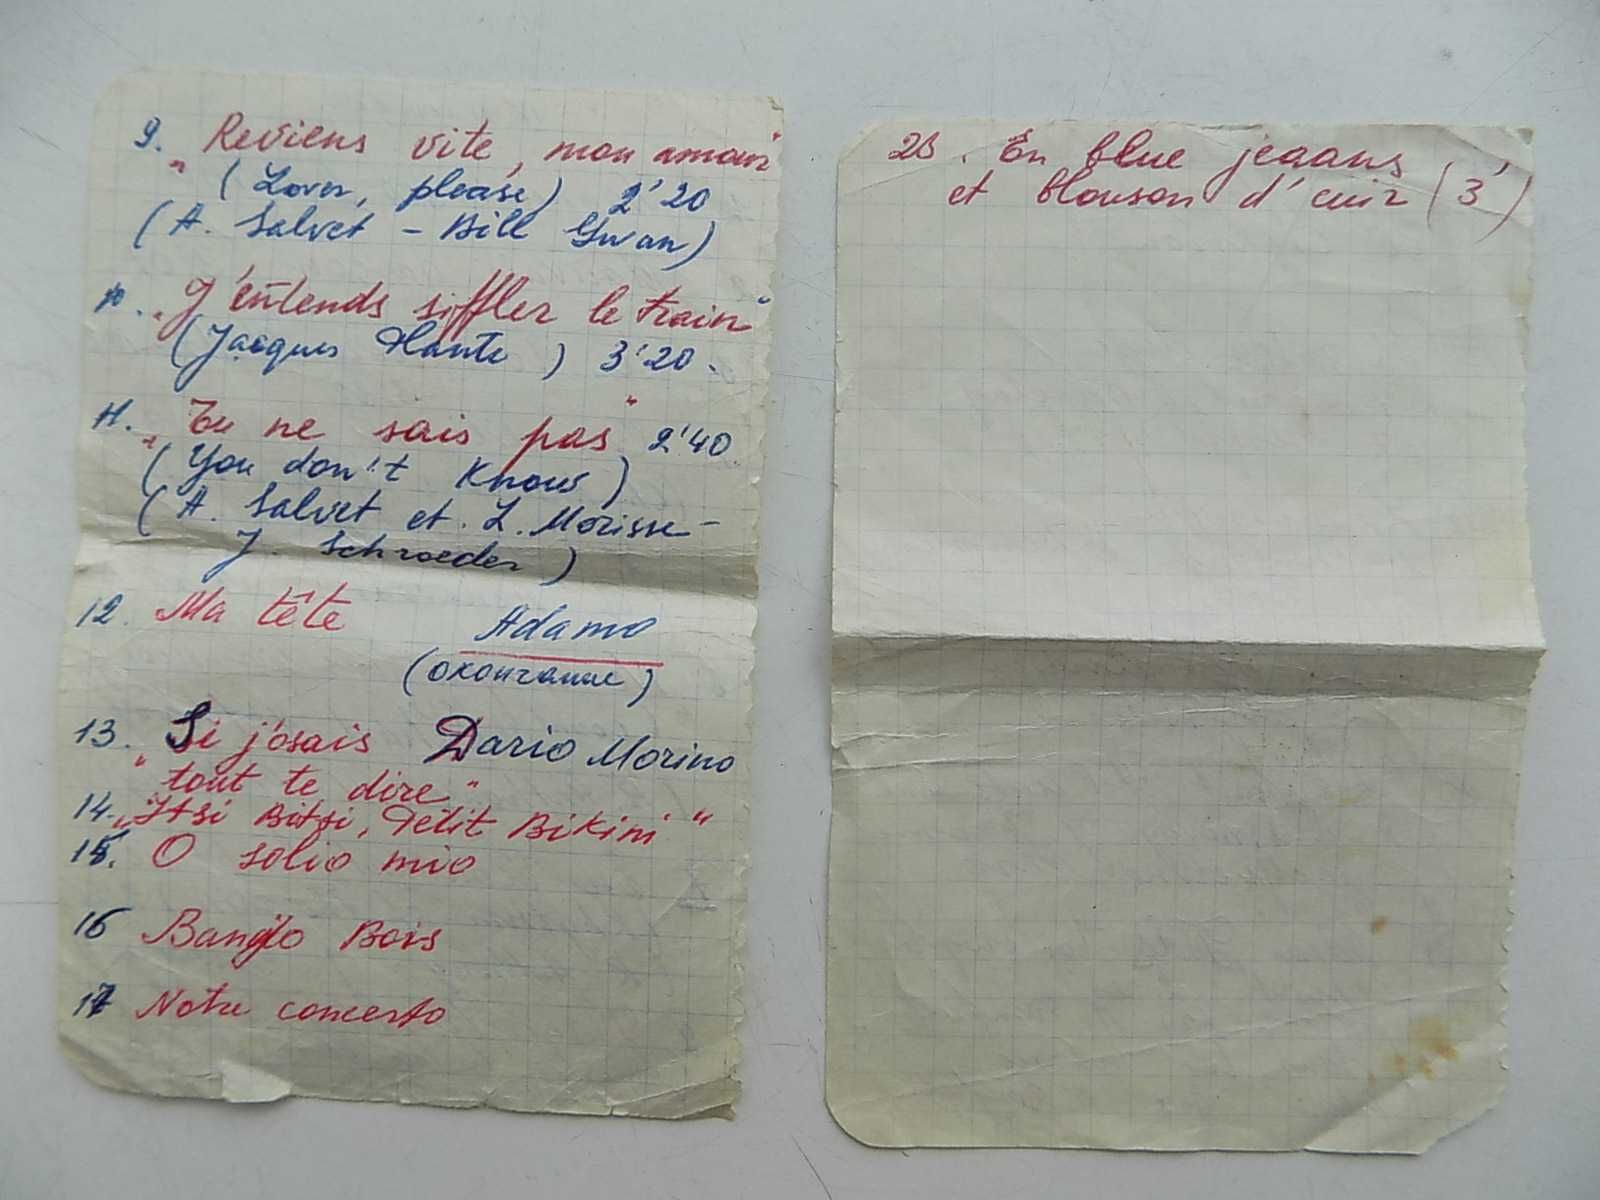 9. Reviens vite, mon amour"
" (Lover, please) 2'20
(A. Salvet - Bill Swan)
10. "J'entends siffler le train"
(Jacques Plante) 3'20.
11. "Tu ne sais pas" 2'40
(You don't Know)
(A. Salvet et L. Morisse-
J. Schroeder)
12. Ma tête Adamo
(окончание)
13. Si j'osais Dario Morino
"tout te dire"
14. "Itsi Bitsi, Petit Bikini"
15. O solio mio
16 Banglo Bois
17 Notre concerto
28. En blue jeaans
et blouson d'cuir (3')